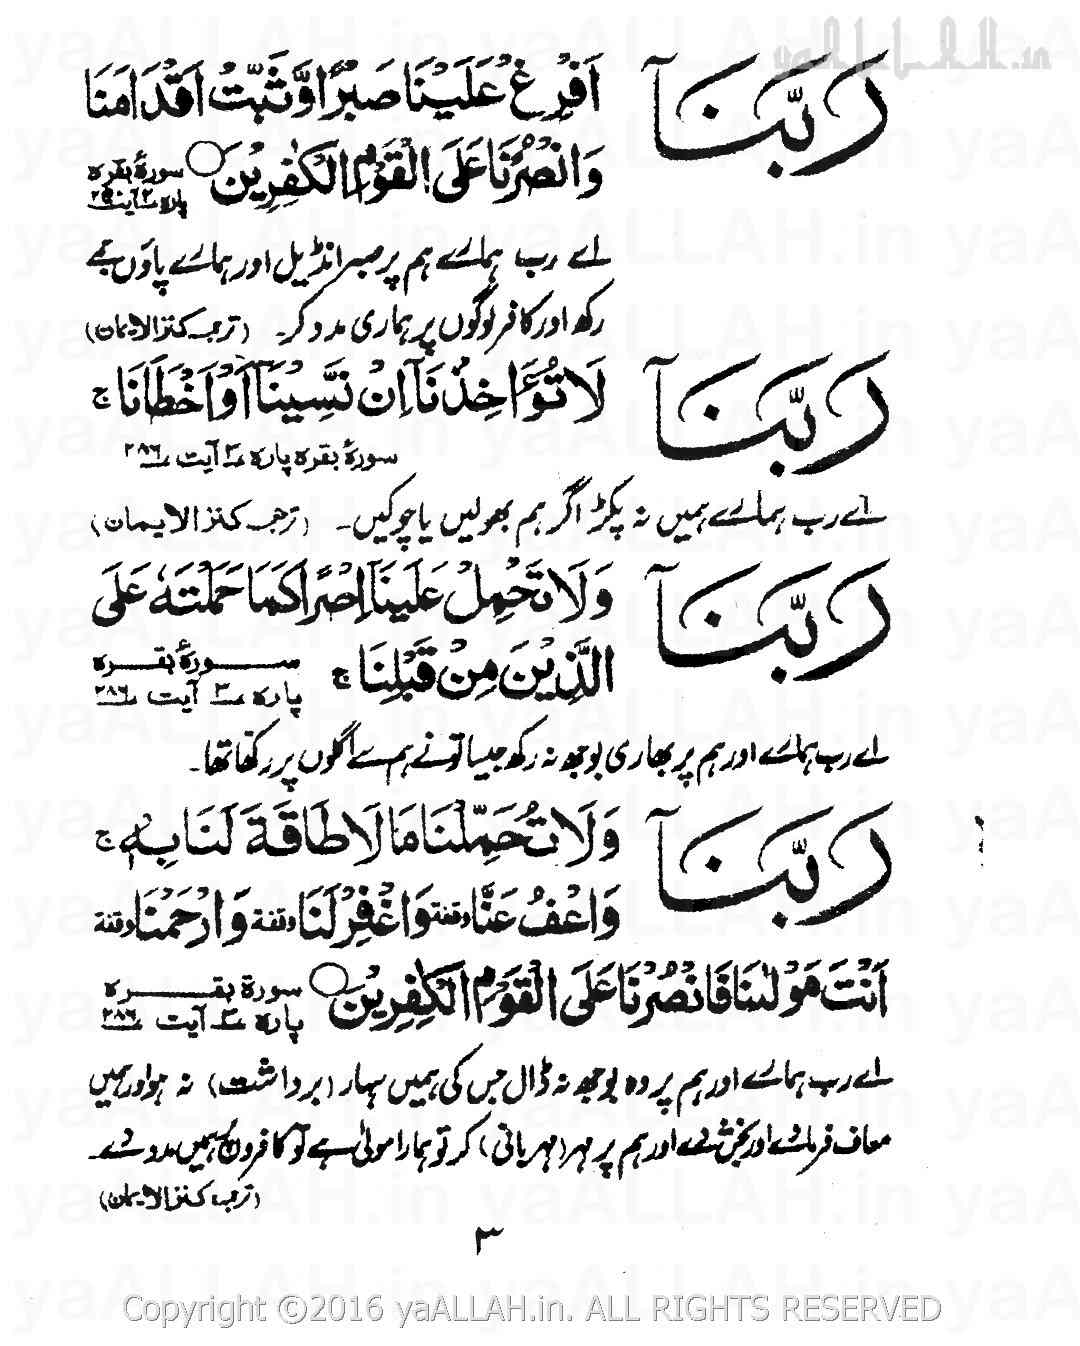 yaALLAH.in
رَبَّنَآ اَفْرِغْ عَلَيْنَا صَبْرًا وَّثَبِّتْ اَقْدَامَنَا
وَانْصُرْنَا عَلَى الْقَوْمِ الْكٰفِرِيْنَ ○ سورۂ بقرہ
پارہ ۲ آیت ۲۵۰
اے رب ہمارے ہم پر صبر انڈیل اور ہمارے پاؤں جمے
رکھ اور کافر لوگوں پر ہماری مدد کر۔ (ترجمہ کنزالایمان)
رَبَّنَآ لَا تُؤَاخِذْنَآ اِنْ نَّسِيْنَآ اَوْ اَخْطَاْنَا ج
سورۂ بقرہ پارہ ۳ آیت ۲۸۶
اے رب ہمارے ہمیں نہ پکڑ اگر ہم بھولیں یا چوکیں۔ (ترجمہ کنز الایمان)
رَبَّنَا وَلَا تَحْمِلْ عَلَيْنَآ اِصْرًا كَمَا حَمَلْتَهٗ عَلَى
الَّذِيْنَ مِنْ قَبْلِنَا ج سورۂ بقرہ
پارہ ۳ آیت ۲۸۶
اے رب ہمارے اور ہم پر بھاری بوجھ نہ رکھ جیسا تو نے ہم سے اگلوں پر رکھا تھا۔
رَبَّنَا وَلَا تُحَمِّلْنَا مَا لَا طَاقَةَ لَنَا بِهٖ ج
وَاعْفُ عَنَّا وقفة وَاغْفِرْ لَنَا وقفة وَارْحَمْنَا وقفة
اَنْتَ مَوْلٰىنَا فَانْصُرْنَا عَلَى الْقَوْمِ الْكٰفِرِيْنَ ○ سورة بقرہ
پارہ ۳ آیت ۲۸۶
اے رب ہمارے اور ہم پر وہ بوجھ نہ ڈال جس کی ہمیں سہار (برداشت) نہ ہو اور ہمیں
معاف فرما دے اور بخش دے اور ہم پر مہر (مہربانی) کر تو ہمارا مولیٰ ہے تو کافروں پر ہمیں مدد دے۔
(ترجمہ کنزالایمان)
۳
Copyright ©2016 yaALLAH.in. ALL RIGHTS RESERVED